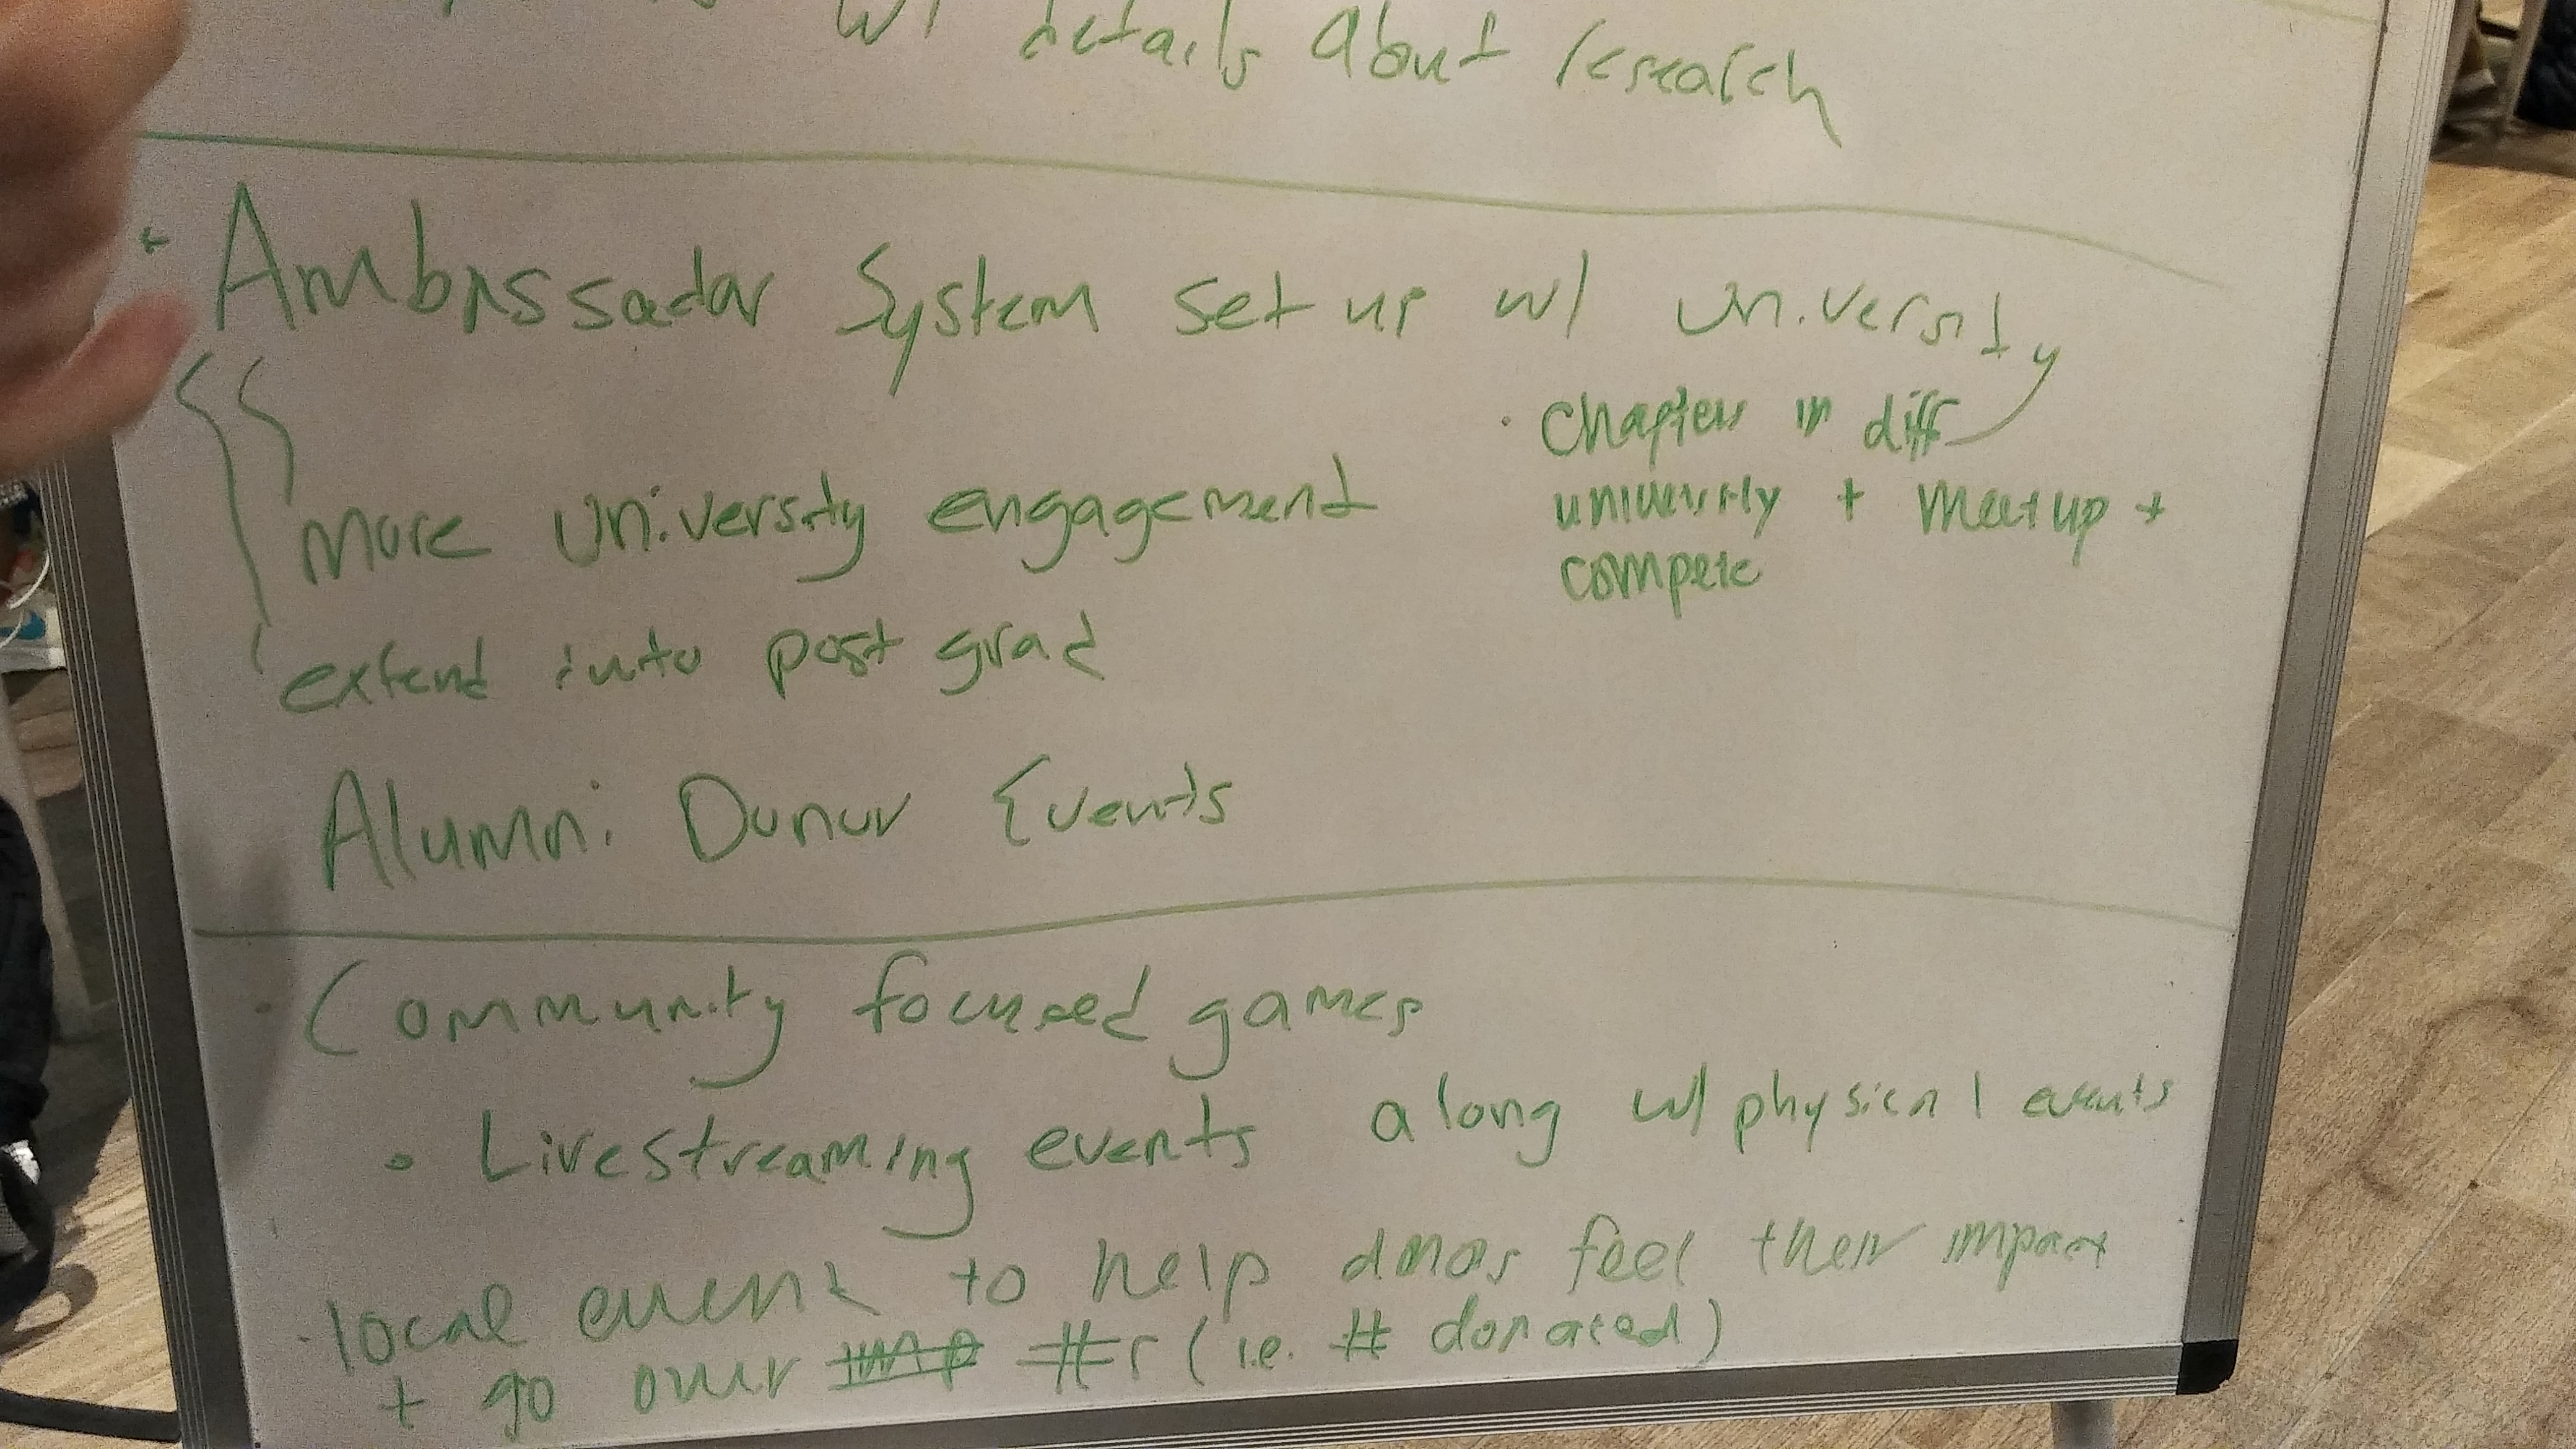 w/ details about research
· Ambassador System set up w/ university
· Chapters in diff
university + meetup +
compete
more university engagement
extend into post grad
Alumni Donor Events
· Community focused games
• Livestreaming events along w/ physical events
· local event to help donors feel their impact
+ go over #s (i.e. # donated)